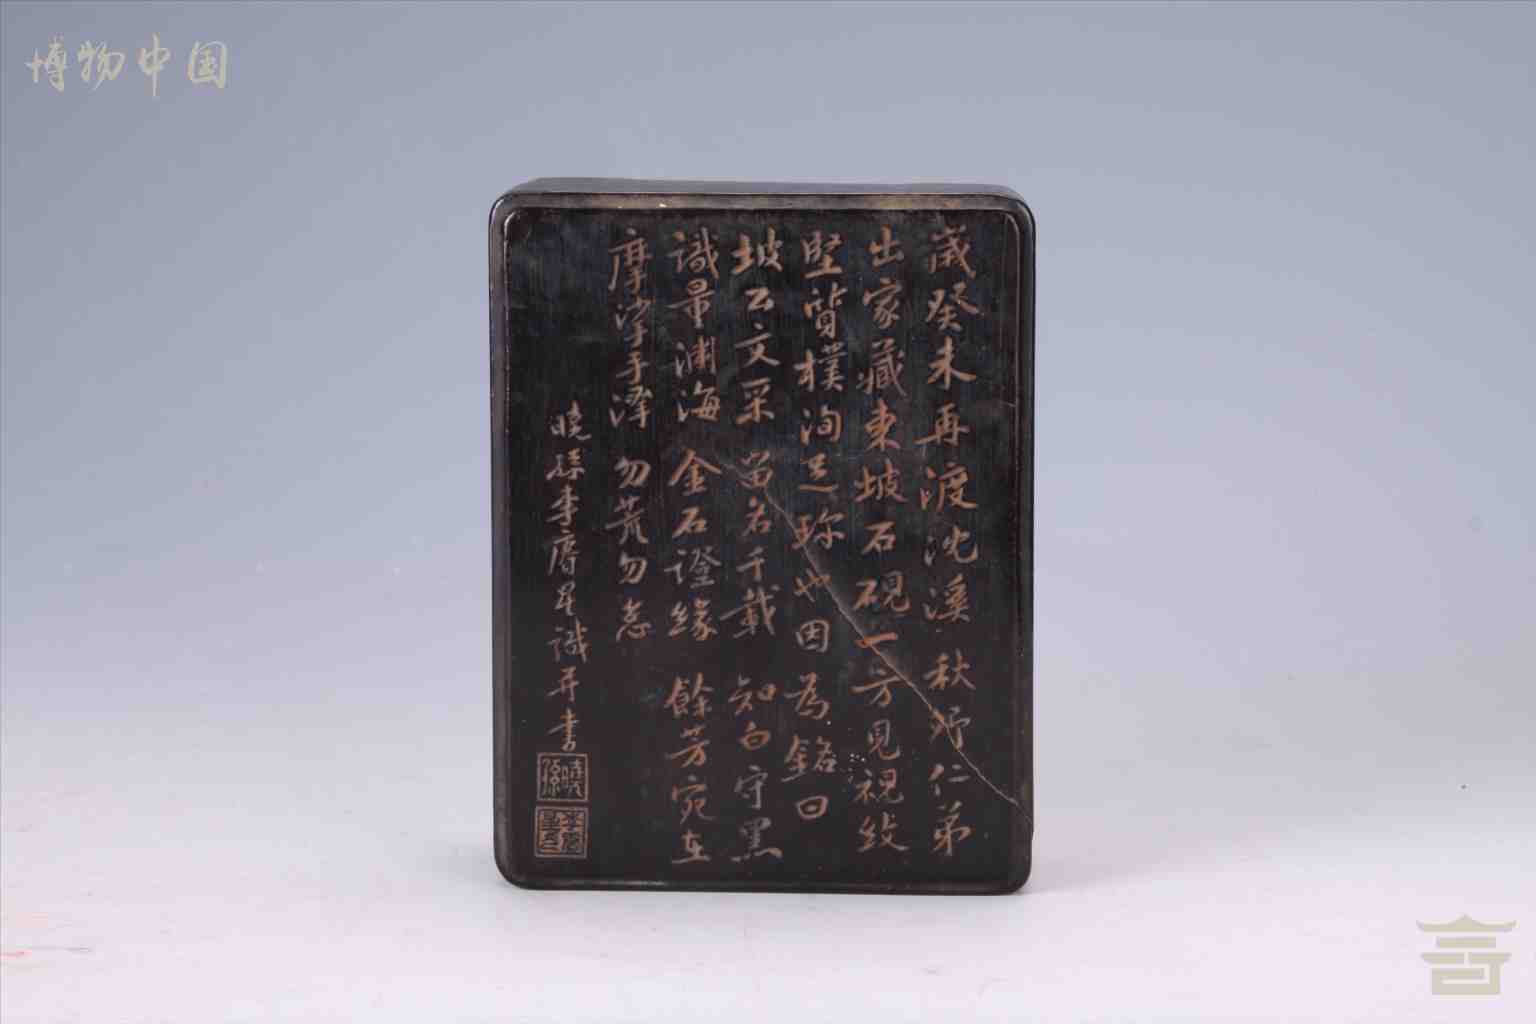 博物中国
歲癸未再渡沈溪秋舫仁弟
出家藏東坡石硯一方見視紋
堅質樸洵足珍也因為銘曰
坡公文采留名千載知白守黑
識量淵海金石證緣餘芳宛在
摩挲手澤勿荒勿怠
曉孫李膺星識并書